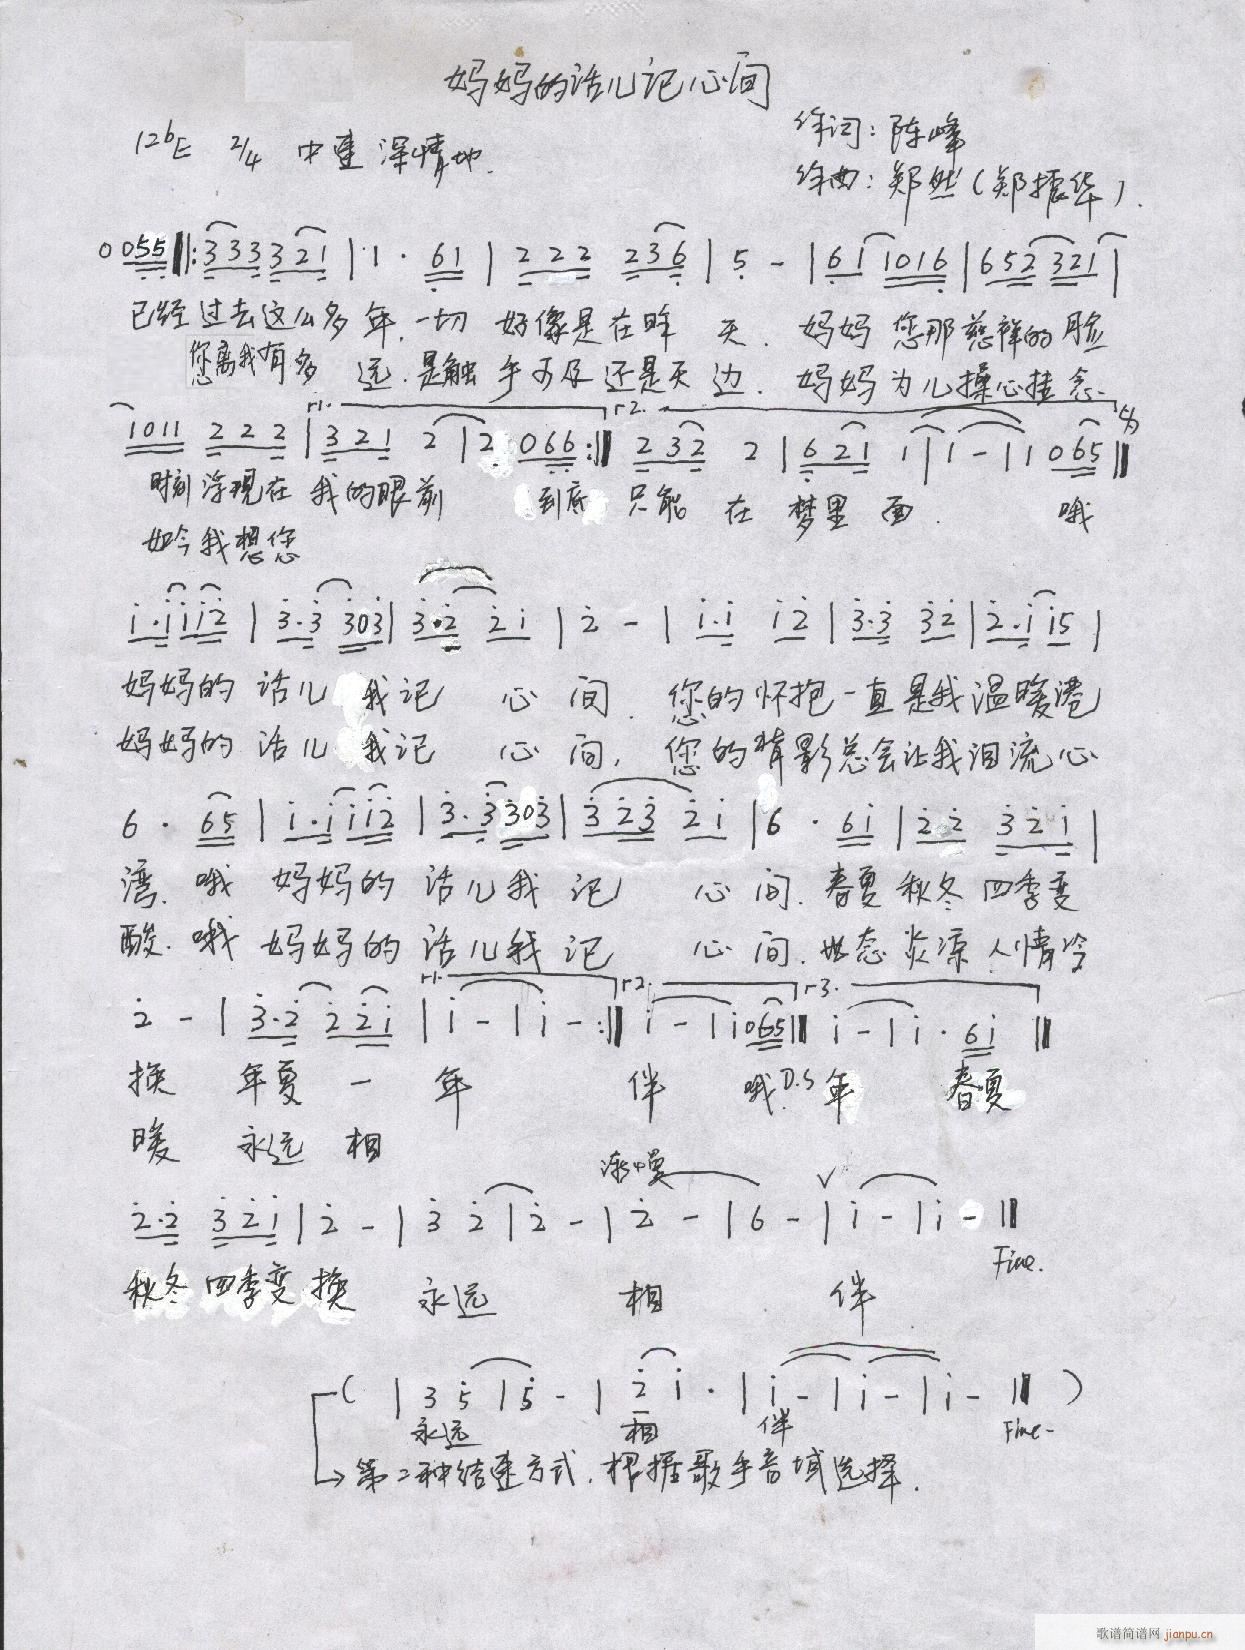 妈妈的话儿记心间
1=♭E 2/4 中速 深情地.
作词: 陈峰
作曲: 郑然(郑振华).
0 055 ‖: 333 321 | 1 · 61 | 222 236 | 5 - | 61 1016 | 652 321 |
已经过去这么多年,一切 好像是在昨 天. 妈妈 您那慈祥的脸
您离我有多 远.是触手可及还是天边. 妈妈为儿操心挂念.
1011 222 | 321 2 | 2 066 :‖ 232 2 | 621 1 | 1 - | 1 065 ‖
时刻浮现在 我的眼前 到底 只能 在 梦里面. 哦
如今我想您
i·iii2 | 3·3 303 | 3·2 2i | 2 - | i·i i2 | 3·3 32 | 2·i i5 |
妈妈的 话儿 我记 心 间. 您的怀抱一直是我温暖港
妈妈的 话儿 我记 心 间, 您的背影总会让我泪流心
6 · 65 | i·iii2 | 3·3 303 | 323 2i | 6 · 6i | 22 32i |
湾.哦 妈妈的 话儿我 记 心 间. 春夏秋冬四季变
酸.哦 妈妈的 话儿我 记 心 间. 世态炎凉人情冷
r1. r2. r3.
2 - | 3·2 22i | i - | i - :‖ i - | i 065 ‖ i - | i · 6i ‖
换 年复 一 年 伴 哦 D.S 年 春夏
暖 永远 相
渐慢
2·2 32i | 2 - | 3 2 | 2 - | 2 - | 6 - | i - | i - ‖
Fine.
秋冬 四季变换 永远 相 伴
( | 3 5 | 5 - | 2 i · | i - | i - | i - ‖ )
永远 相 伴 Fine.
第二种结束方式.根据歌手音域选择.
歌谱简谱网 jianpu.cn